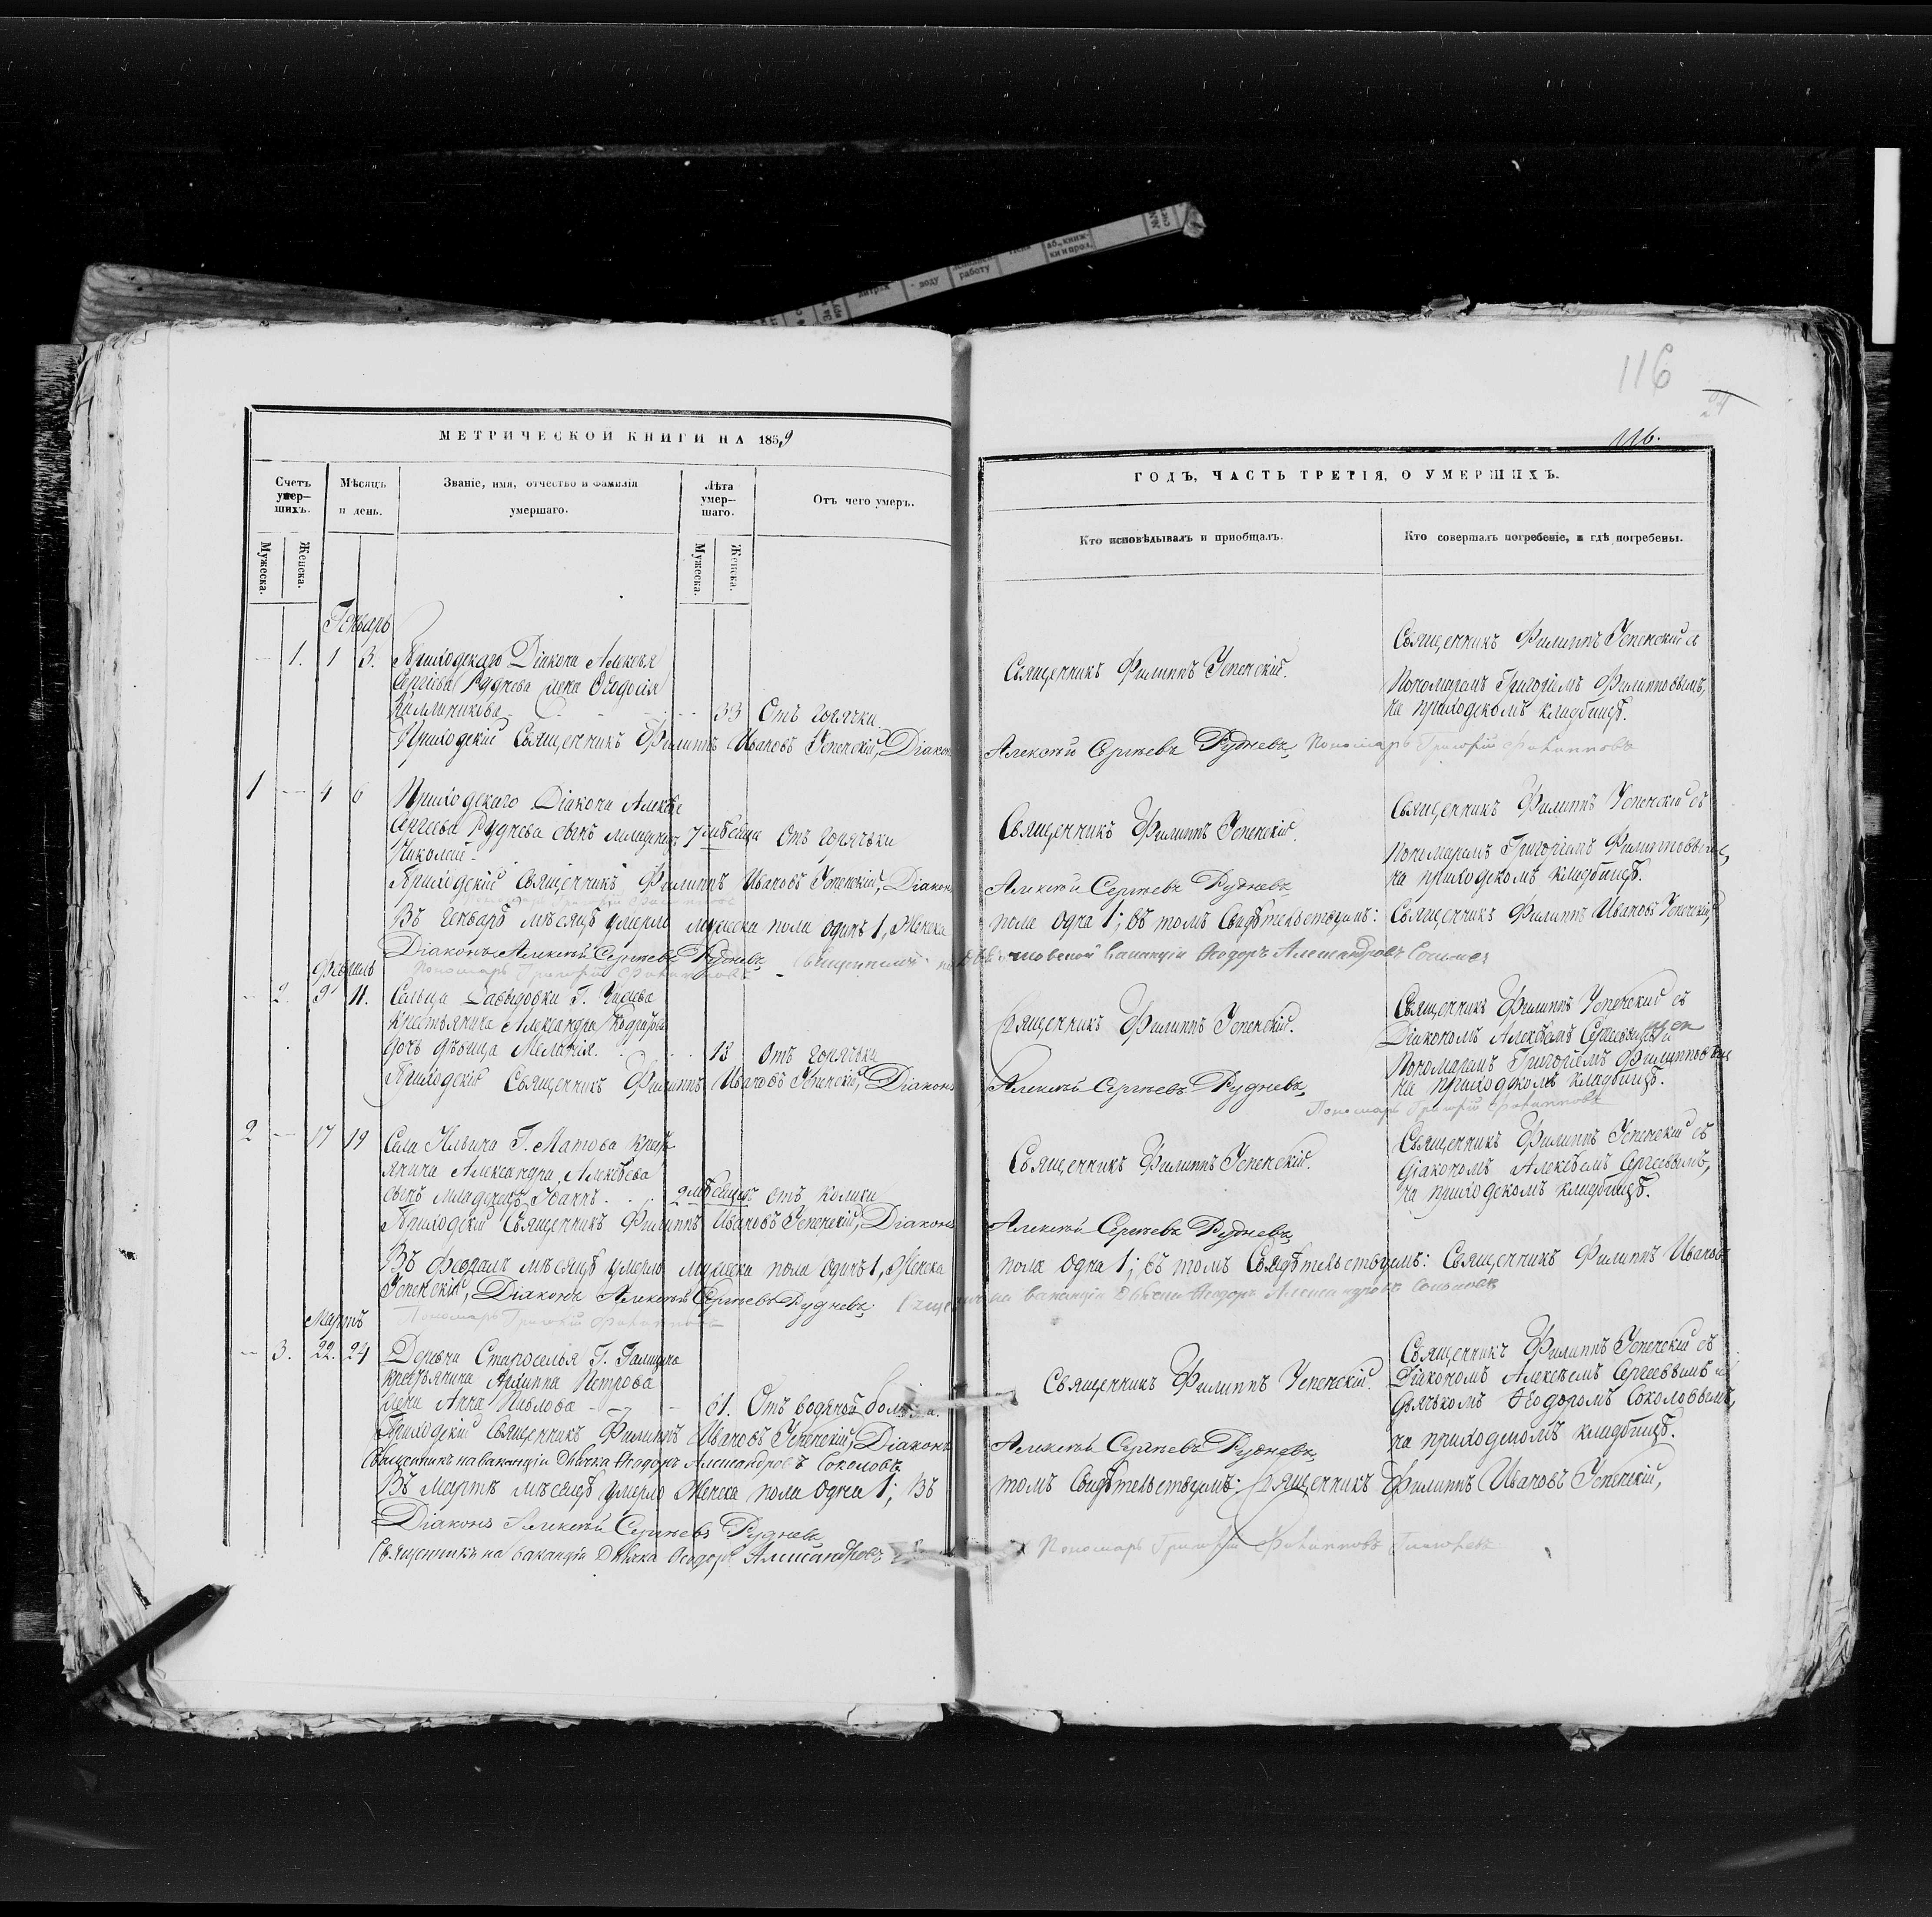 116
24
116.
МЕТРИЧЕСКОЙ КНИГИ НА 1859
Счетъ умер-
шихъ.
Мѣсяцъ
и день.
Званіе, имя, отчество и фамилія
умершаго.
Лѣта
умер-
шаго.
Отъ чего умеръ.
Мужеска.
Женска.
Мужеска.
Женска.
Генварь
1. 1 3. Приходскаго Діакона Алексѣя
Сергіева Руднева жена Ѳеодосія
Каллиникова 33 Отъ горячки
Приходскій Священникъ Филиппъ Ивановъ Успенскій, Діаконъ
1 4 6 Приходскаго Діакона Алексѣя
Сергіева Руднева сынъ младенецъ 7 мѣсяца Отъ горячки
Николай
Приходскій Священникъ Филиппъ Ивановъ Успенскій, Діаконъ
Пономарь Григорій Филипповъ
Въ Генварѣ мѣсяцѣ умерло мужеска пола одинъ 1, Женска
Діаконъ Алексѣй Сергѣевъ Рудневъ
Пономарь Григорій Филипповъ
Февраль
2. 9 11. Сельца Давыдовки Г.
крестьянина Александра
дочь дѣвица Меланія. 18 Отъ горячки
Приходскій Священникъ Филиппъ Ивановъ Успенскій, Діаконъ
2 17 19 Села Ильина Г. кресть
янина Александра Алексѣева
сынъ младенецъ Іоаннъ 2 мѣсяцъ Отъ колики
Приходскій Священникъ Филиппъ Ивановъ Успенскій, Діаконъ
Въ Февралѣ мѣсяцѣ умерло мужеска пола одинъ 1, Женска
Успенскій, Діаконъ Алексѣй Сергѣевъ Рудневъ
Пономарь Григорій Филипповъ
Мартъ
3. 22. 24 Деревни Староселья Г. Галицина
крестьянина Архиппа Петрова
жена Анна Павлова 61. Отъ водяной
Приходскій Священникъ Филиппъ Ивановъ Успенскій, Діаконъ
Священникъ на ваканціи Дьячка Ѳеодоръ Александровъ Соколовъ
Въ Мартѣ мѣсяцѣ умерло Женска пола одна 1; Въ
Діаконъ Алексѣй Сергѣевъ Рудневъ
Священникъ на ваканціи Дьячка Ѳеодоръ Александровъ
ГОДЪ, ЧАСТЬ ТРЕТІЯ, О УМЕРШИХЪ.
Кто исповѣдывалъ и пріобщалъ.
Кто совершалъ погребеніе, и гдѣ погребены.
Священникъ Филиппъ Успенскій.
Священникъ Филиппъ Успенскій съ
Пономаремъ Григоріемъ Филипповымъ,
на приходскомъ кладбищѣ.
Алексѣй Сергѣевъ Рудневъ, Пономарь Григорій Филипповъ
Священникъ Филиппъ Успенскій.
Священникъ Филиппъ Успенскій съ
Пономаремъ Григоріемъ Филипповымъ,
на приходскомъ кладбищѣ.
Алексѣй Сергѣевъ Рудневъ
пола одна 1; въ томъ Свидѣтельствуемъ: Священникъ Филиппъ Ивановъ Успенскій,
ваканціи Ѳеодоръ Александровъ
Священникъ Филиппъ Успенскій.
Священникъ Филиппъ Успенскій съ
Діакономъ Алексѣемъ Сергѣевымъ и
Пономаремъ Григоріемъ Филипповымъ
на приходскомъ кладбищѣ.
Алексѣй Сергѣевъ Рудневъ
Пономарь Григорій Филипповъ
Священникъ Филиппъ Успенскій.
Священникъ Филиппъ Успенскій съ
Діакономъ Алексѣемъ Сергѣевымъ,
на приходскомъ кладбищѣ.
Алексѣй Сергѣевъ Рудневъ
пола одна 1; въ томъ Свидѣтельствуемъ: Священникъ Филиппъ Ивановъ
на ваканціи Ѳеодоръ
Священникъ Филиппъ Успенскій.
Священникъ Филиппъ Успенскій съ
Діакономъ Алексѣемъ Сергѣевымъ и
Дьячкомъ Ѳеодоромъ Соколовымъ,
на приходскомъ кладбищѣ.
Алексѣй Сергѣевъ Рудневъ
томъ Свидѣтельствуемъ: Священникъ Филиппъ Ивановъ Успенскій,
Пономарь Григорій Филипповъ